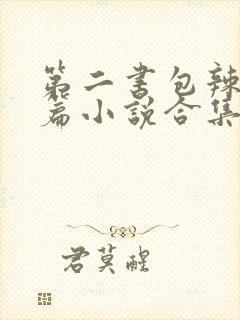 第二书包辣
篇小说合集
君莫醒